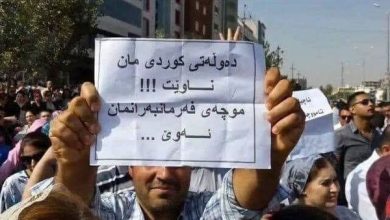 دەوڵەتی کوردی مان
ناوێت !!!
موچەی فەرمانبەرانمان
ئەوێ ...